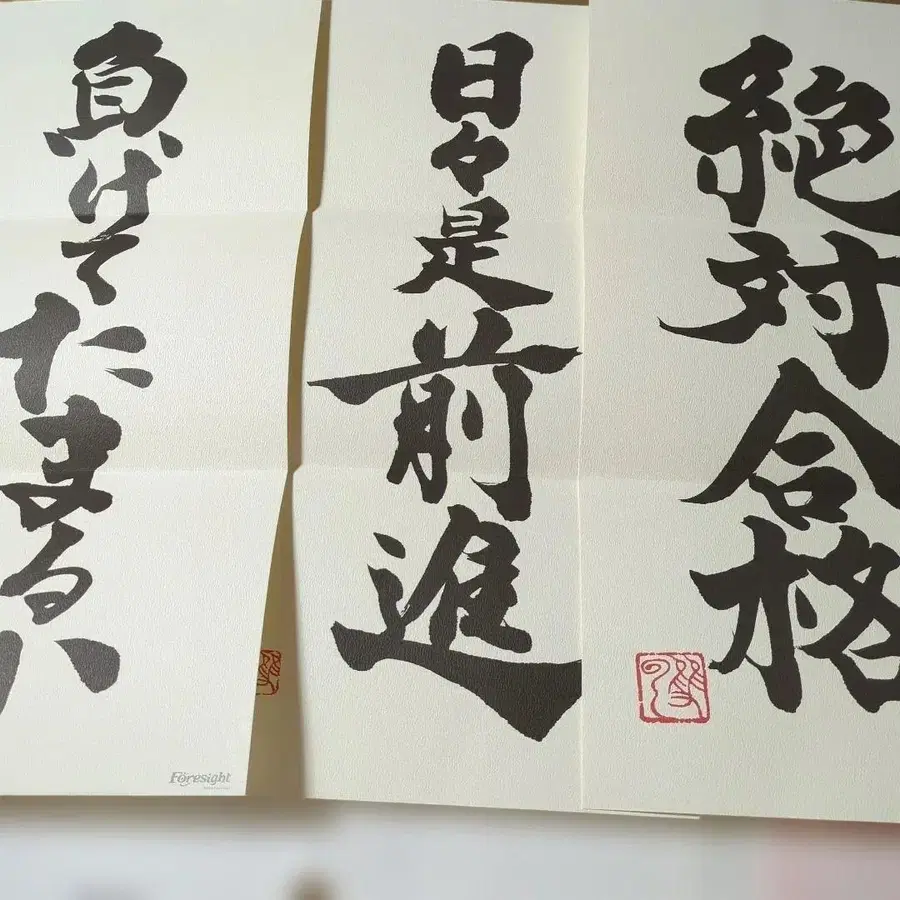 絶対合格
日々是前進
負けてたまるか
Foresight